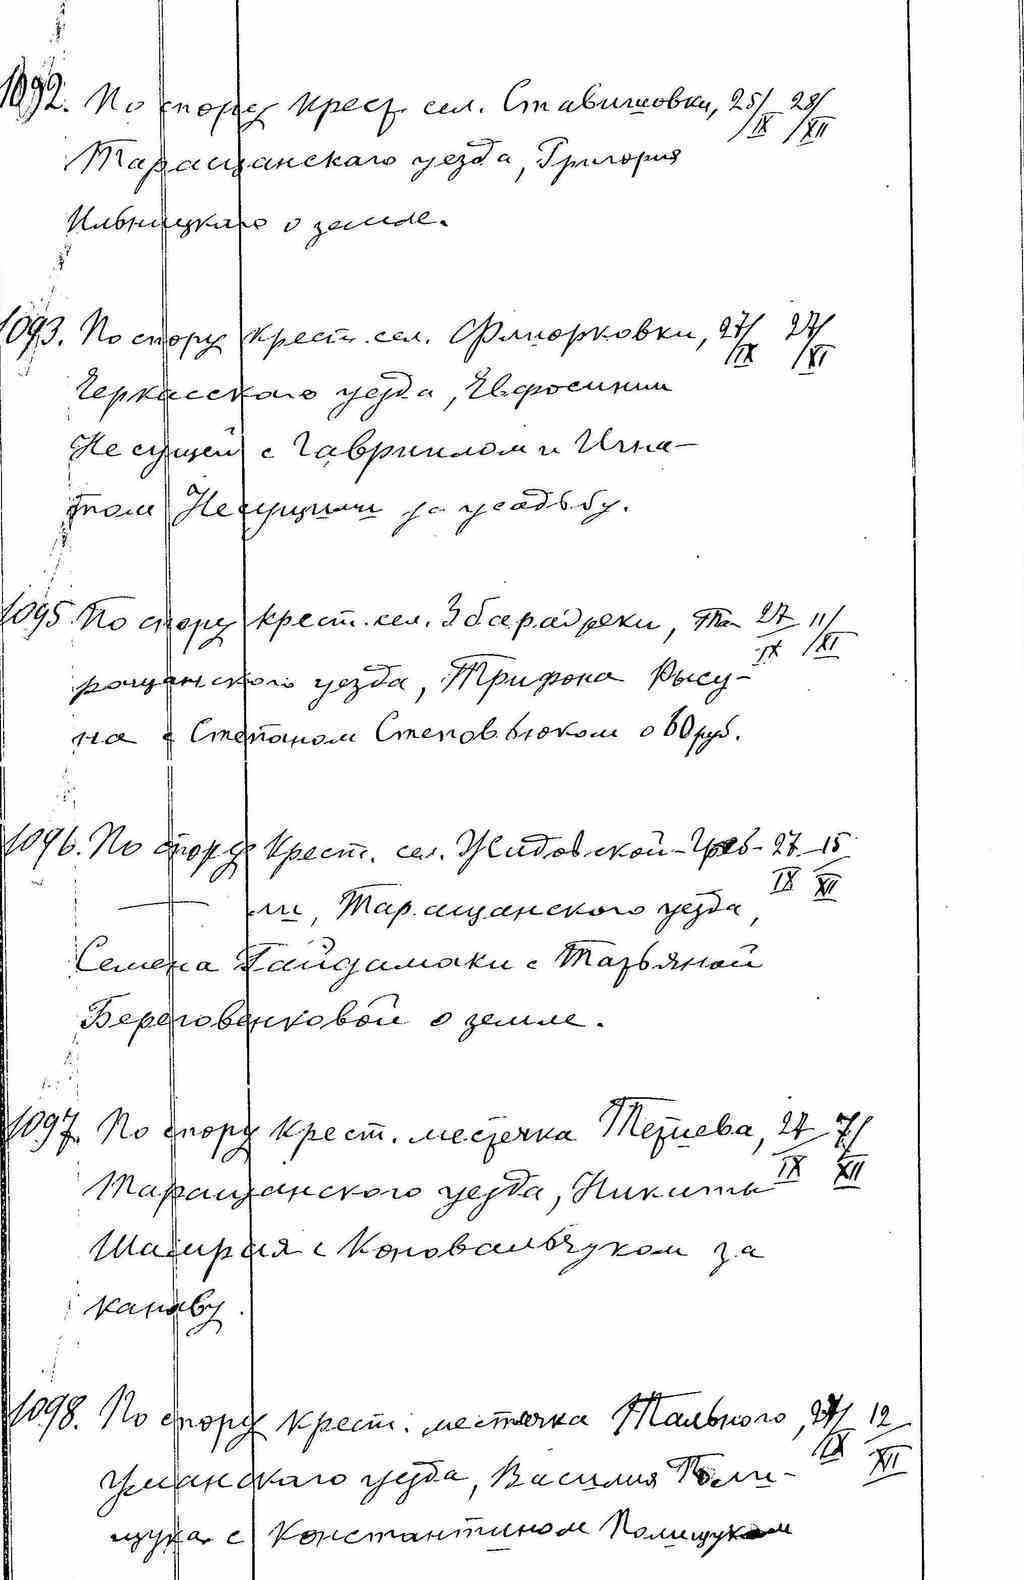 1092. По спору крест. сел. Ставишовки, 25/IX 28/XII
Таращанского уезда, Григория
Ильницкаго о земле.
1093. По спору крест. сел. Флиорковки, 27/IX 27/XI
Черкасского уезда, Евфосинии
Несущей с Гавриилом и Игна-
том Несущими за усадьбу.
1095. По спору крест. сел. , Та- 27/IX 11/XI
ращанского уезда, Трифона Рысу-
на с Степаном о 60 руб.
1096. По спору Крест. сел. Жидовской-Греб- 27/IX 15/XII
ли, Таращанского уезда,
Семена Гайдамаки с Татьяной
Береговенковой о земле.
1097. По спору крест. местечка Тетиева, 27/IX 7/XII
Таращанского уезда, Никиты
Шамрая с Коновальчуком за
канаву.
1098. По спору крест. местечка Тального, 27/IX 12/XII
Уманскаго уезда, Василия Поли-
щука с Константином Полищуком